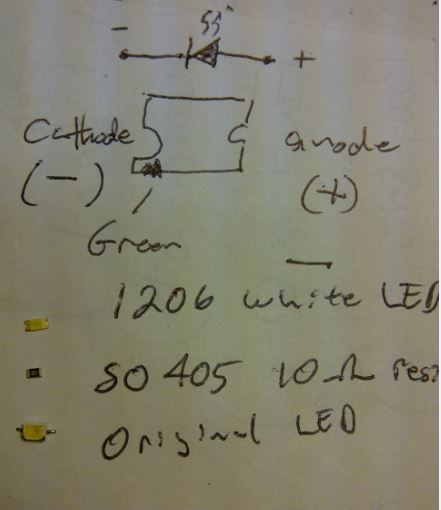 - +
Cathode anode
(-) (+)
Green
1206 white LED
SO 405 10Ω res
Original LED